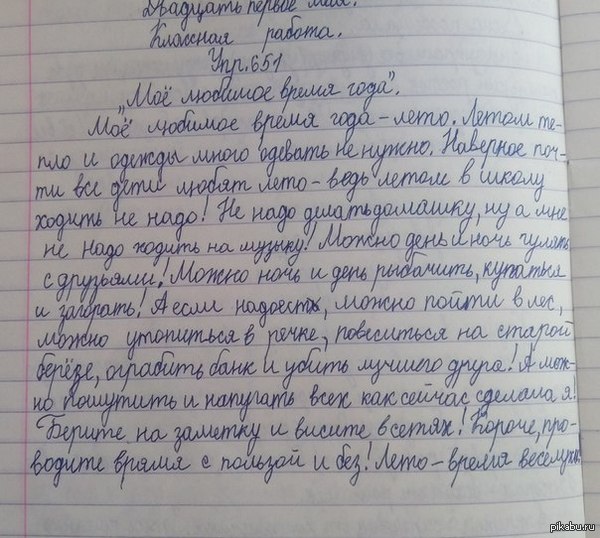 Двадцать первое мая.
Классная работа.
Упр. 651
„Моё любимое время года".
Моё любимое время года – лето. Летом те-
пло и одежды много одевать не нужно. Наверное поч-
ти все дети любят лето – ведь летом в школу
ходить не надо! Не надо делать домашку, ну а мне
не надо ходить на музыку! Можно день и ночь гулять
с друзьями! Можно ночь и день рыбачить, купаться
и загорать! А если надоесть, можно пойти в лес,
можно утопиться в речке, повеситься на старой
берёзе, ограбить банк и убить лучшего друга! А мож-
но пошутить и напугать всех как сейчас сделала я!
Берите на заметку и висите в сетях! Короче, про-
водите время с пользой и без! Лето – время веселухи!
pikabu.ru